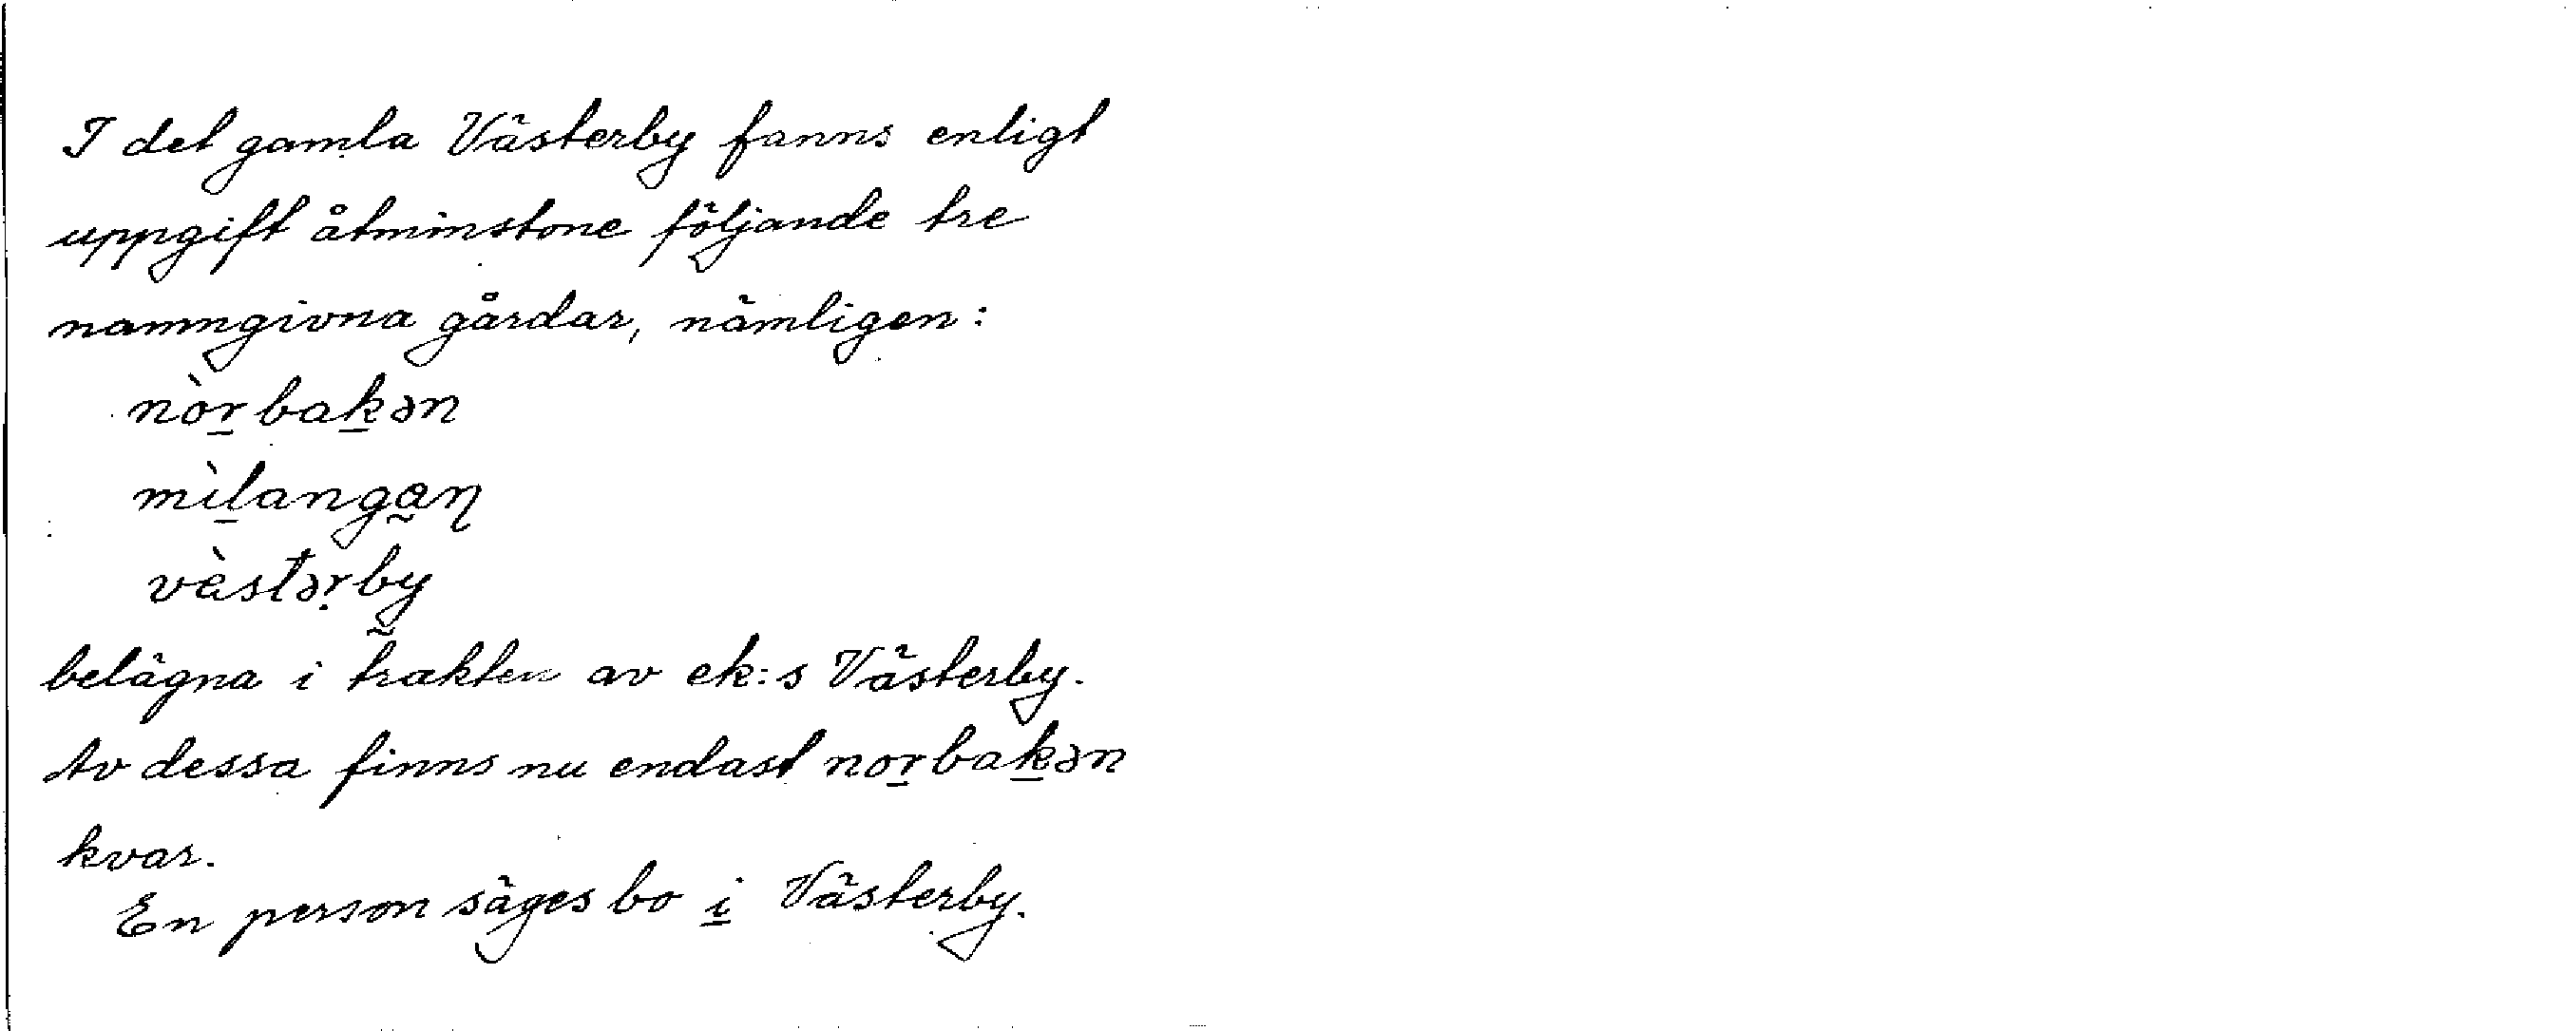 I det gamla Västerby fanns enligt
uppgift åtminstone följande tre
namngivna gårdar, nämligen:
nòr̲bak̲ən
mìl̲anga̰ŋ
væ̀stərby̰
belägna i trakten av ek:s Västerby.
Av dessa finns nu endast nor̲bak̲ən
kvar.
En person säges bo i̲ Västerby.